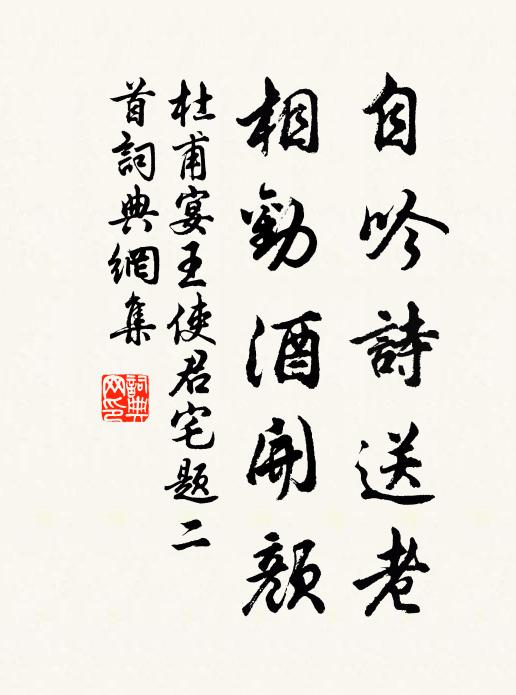 自吟詩送老
相勸酒開顏
杜甫宴王使君宅題二
首詞典網集
詞典网印